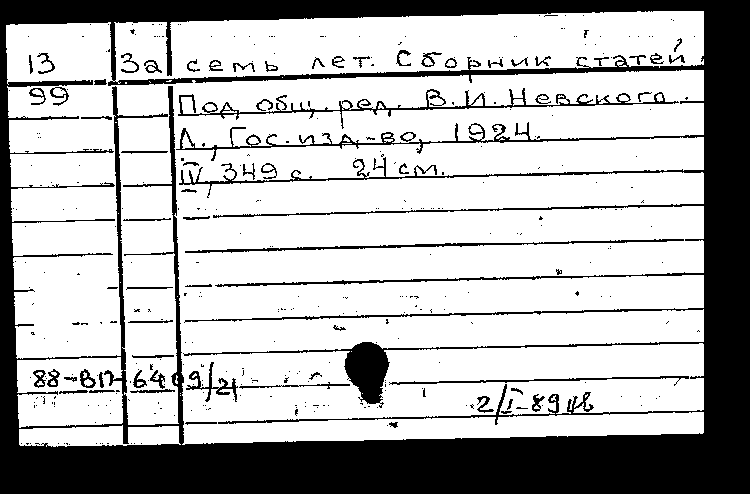 13 За семь лет. Сборник статей.
99 Под общ. ред. В.И. Невского.
Л., Гос. изд-во, 1924.
IV, 349 с. 24 см.
88-ВП-6409/21
2/I-89